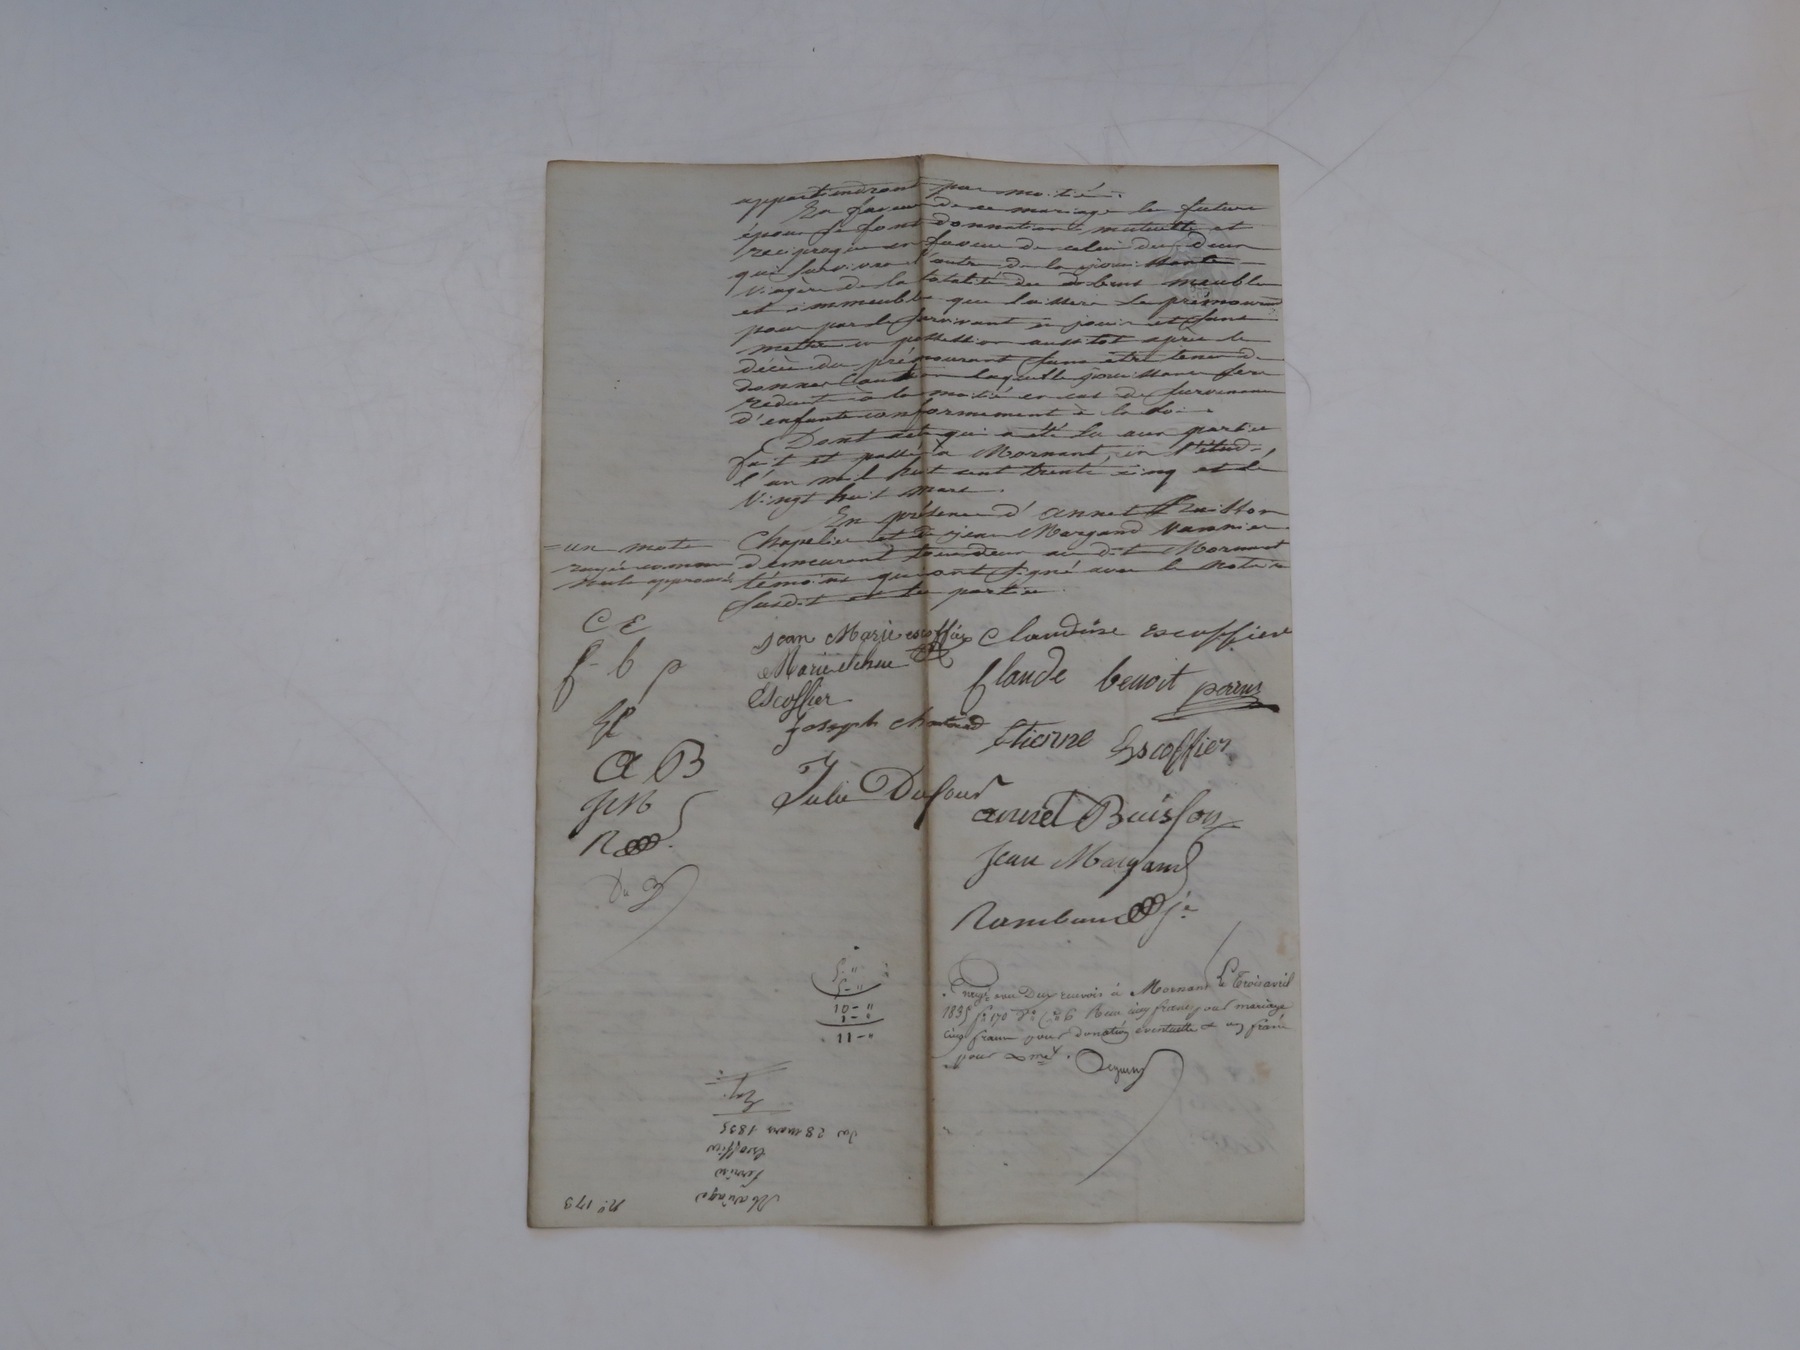 appartiendront par moitié.
En faveur de ce mariage les futurs
époux se font donnation mutuelle et
reciproque en faveur de celui des deux
qui survivra l'autre de la jouissance
viagère de la totalité des biens meubles
et immeubles que laissera le prémourant
pour par le survivant en jouir et s'ans
mettre en possession aussitot après le
décès du prémourant sans etre tenu de
donner caution laquelle jouissance sera
reduite à la moitié en cas de survenance
d'enfants conformement à la loi.
Dont acte qui a été lu aux parties
fait et passé à Mornant, en l'étude,
l'an mil huit cent trente cinq et le
vingt huit mars.
En présence d'annet Buisson
Chapelier et de jean Margand vannier
demeurant tous deux au dit Mornant
témoins qui ont signé avec le Notaire
susdit et les parties.
= un mots
rayée comme
nuls approuvé
C E
f b p
A B
J M
Jean Marie escoffier Claudine Escoffier
Marie
Escoffier
Claude benoit perrus
Joseph
Etienne Escoffier
Julie Dufour
annet Buisson
Jean Margand
Rambaud
5 - "
5 - "
10 - "
1 - "
11 - "
Enrgé avec Deux renvois à Mornant Le Trois avril
1835 fo 170 Vo Co 6 Reçu cinq francs pour mariage
cinq francs pour donation éventuelle & un franc
pour
Du 28 mars 1835
Escoffier
Mariage
No. 173